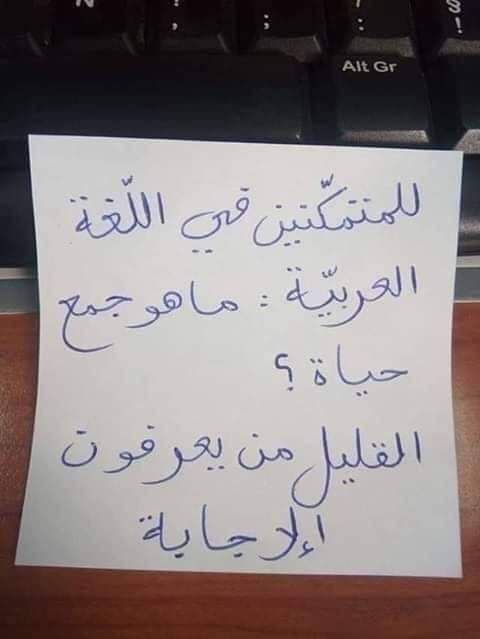 N
;
,
:
.
§
!
Alt Gr
للمتمكّنين في اللّغة
العربيّة : ما هو جمع
حياة ؟
القليل من يعرفون
الإجابة